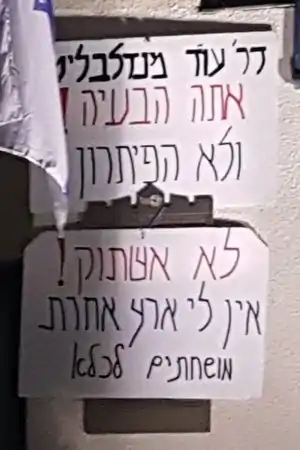 דר' עו"ד מנדלבליט
אתה הבעיה!
ולא הפיתרון
לא אשתוק!
אין לי ארץ אחרת.
מושחתים לכלא